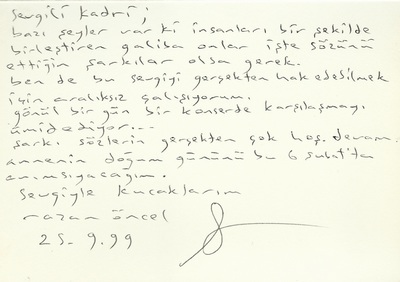 sevgili kadri;
bazı şeyler var ki insanları bir şekilde
birleştiren galiba onlar işte sözünü
ettiğin şarkılar olsa gerek.
ben de bu sevgiyi gerçekten hak edebilmek
için aralıksız çalışıyorum.
gönül bir gün bir konserde karşılaşmayı
ümid ediyor...
şarkı sözlerin gerçekten çok hoş. devam.
annenin doğum gününü bu 6 şubat'ta
anımsıyacağım.
sevgiyle kucaklarım
nazan öncel
25.9.99